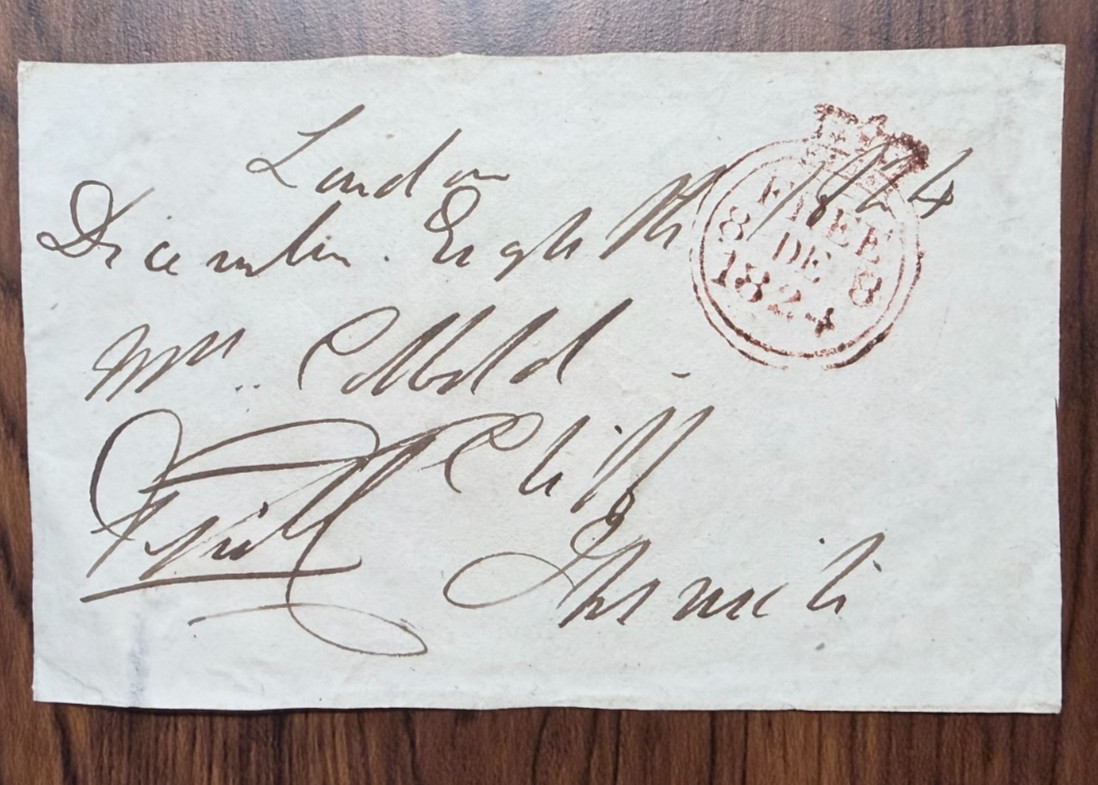 London
December Eighth 1824
Mrs Cobbold
Cliff
Ipswich
FREE
8 DE 8
1824